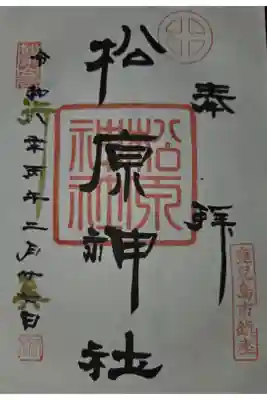 奉拝
鹿児島市鎮座
松原神社
松原神社
令和八年丙午二月廿六日